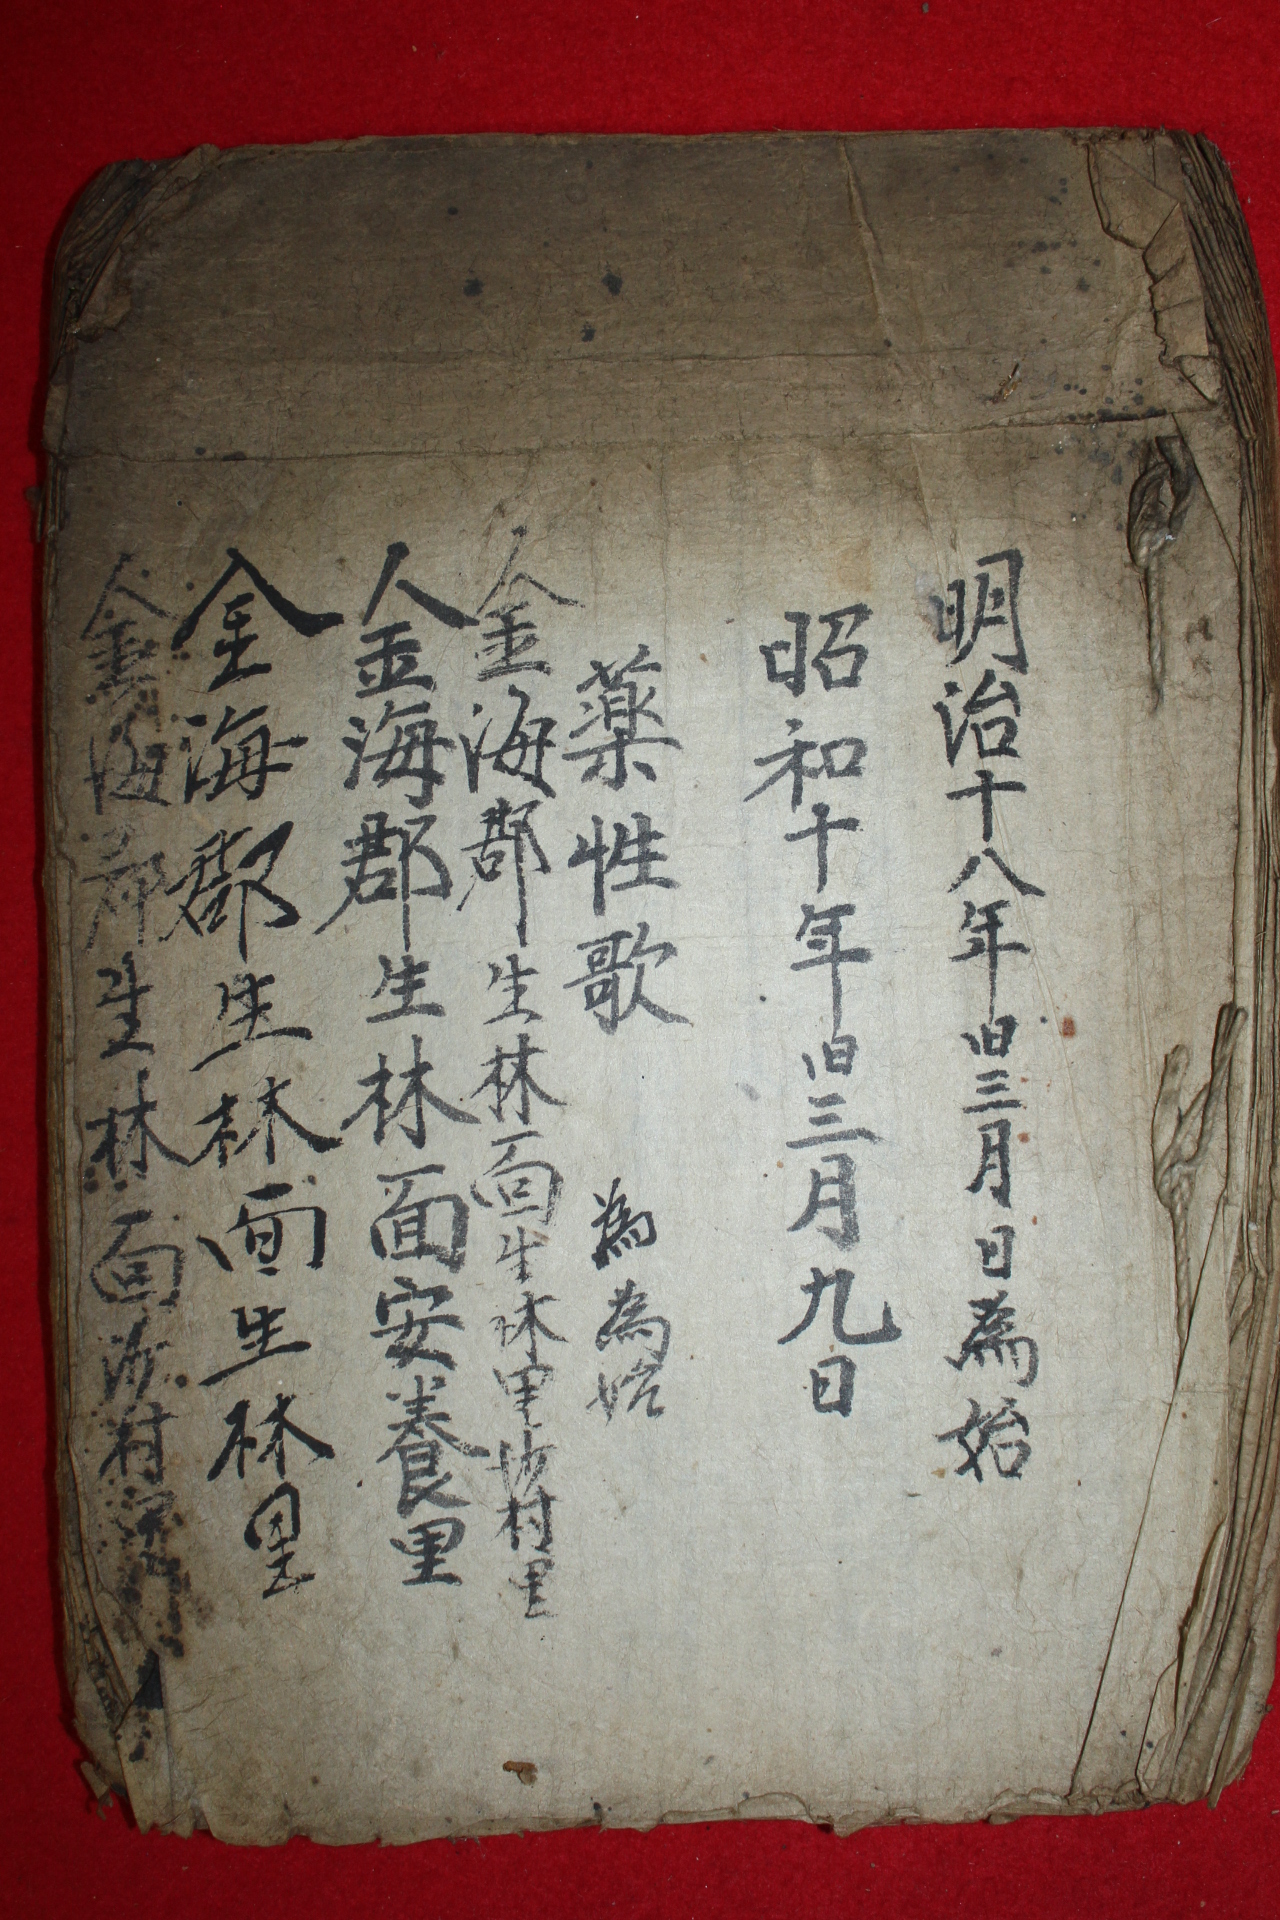 明治十八年旧三月日為始
昭和十年旧三月九日
薬性歌 為為始
金海郡生林面生林里 村里
金海郡生林面安養里
金海郡生林面生林里
金海郡生林面 村